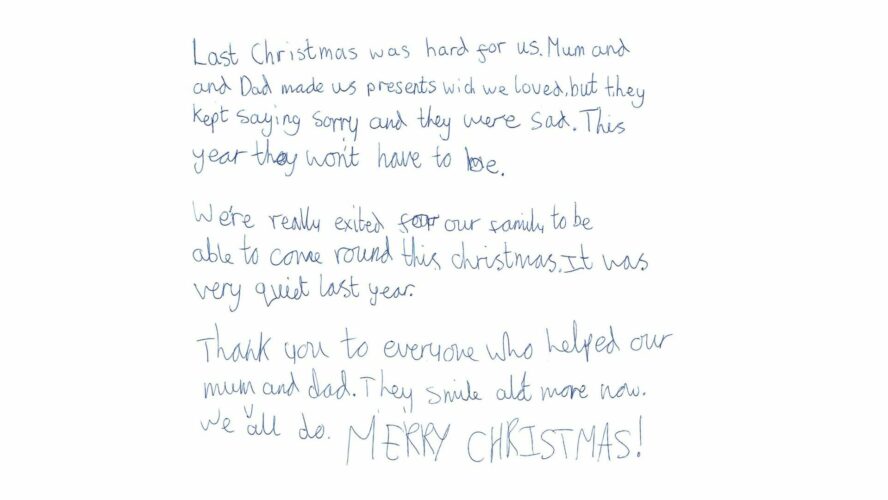 Last Christmas was hard for us. Mum and
and Dad made us presents wich we loved, but they
kept saying sorry and they were sad. This
year they won't have to be.
We're really exited for our family to be
able to come round this christmas. It was
very quiet last year.
Thank you to everyone who helped our
mum and dad. They smile alot more now.
We all do. MERRY CHRISTMAS!